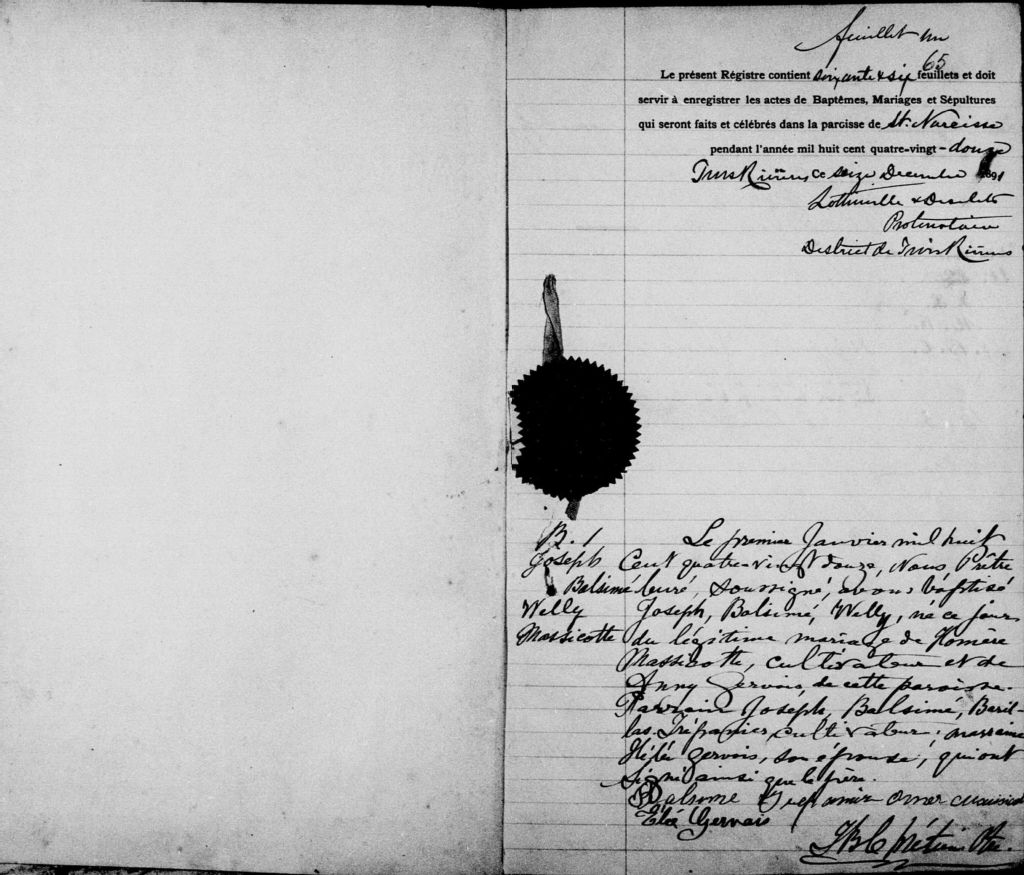 feuillet un
65
Le présent Régistre contient soixante & six feuillets et doit
servir à enregistrer les actes de Baptêmes, Mariages et Sépultures
qui seront faits et célébrés dans la paroisse de St. Narcisse
pendant l'année mil huit cent quatre-vingt-douze
Trois Rivières, Ce seize Decembre 1891
& Desilets
Protonotaire
District de Trois Rivières
B. 1
Joseph
Balsimé
Welly
Massicotte
Le premier Janvier mil huit
Cent quatre-vingt douze, Nous Prêtre
Curé, soussigné, avons baptisé
Joseph, Balsimé, Welly, né ce jour
du légitime mariage de Homère
Massicotte, cultivateur et de
Anny Gervais, de cette paroisse.
Parrain Joseph, Balsimé,
Trépanier, cultivateur; marraine
Gervais, son épouse, qui ont
signé ainsi que le père.
Balsome Trepanier Omer
Gervais